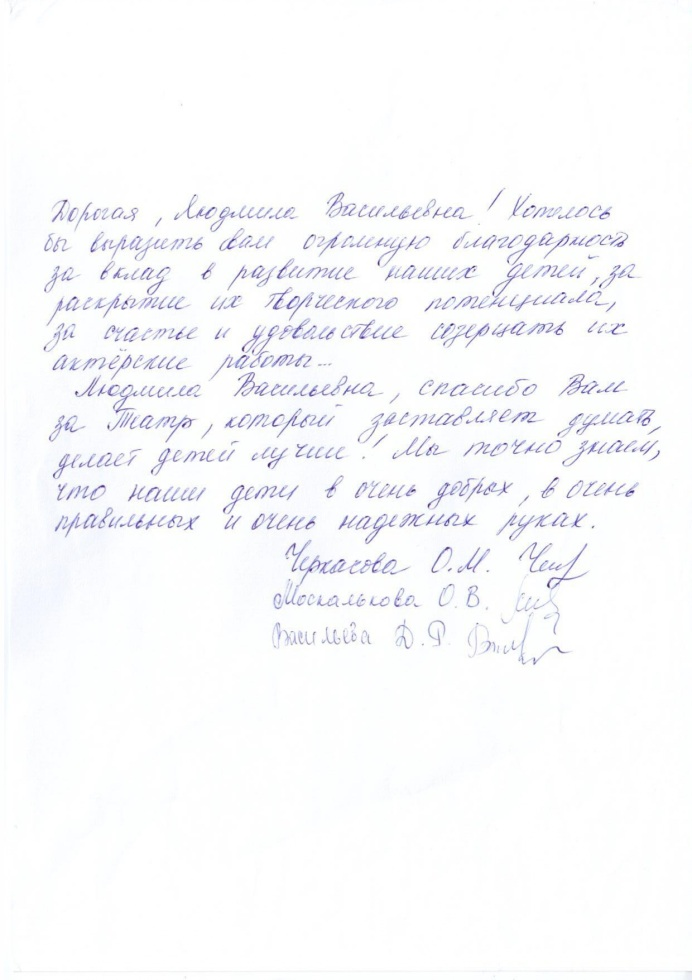 Дорогая, Людмила Васильевна! Хотелось
бы выразить Вам огромную благодарность
за вклад в развитие наших детей, за
раскрытие их творческого потенциала,
за счастье и удовольствие созерцать их
актёрские работы...
Людмила Васильевна, спасибо Вам
за Театр, который заставляет думать,
делает детей лучше! Мы точно знаем,
что наши дети в очень добрых, в очень
правильных и очень надежных руках.
О.М.
Москалькова О.В.
Васильева Д.Р.